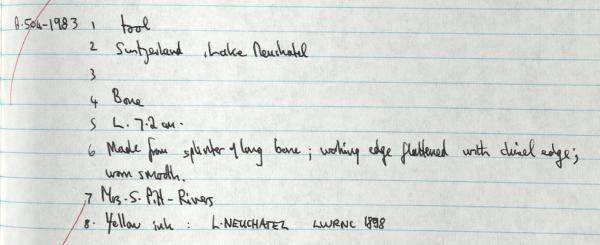 A.504-1983 1 tool
2 Switzerland, Lake Neuchatel
3
4 Bone
5 L. 7.2 cm.
6 Made from splinter of long bone; working edge flattened with chisel edge;
worn smooth.
7 Mrs. S. Pitt-Rivers
8. Yellow ink: L. NEUCHATEL LWRNC 1898